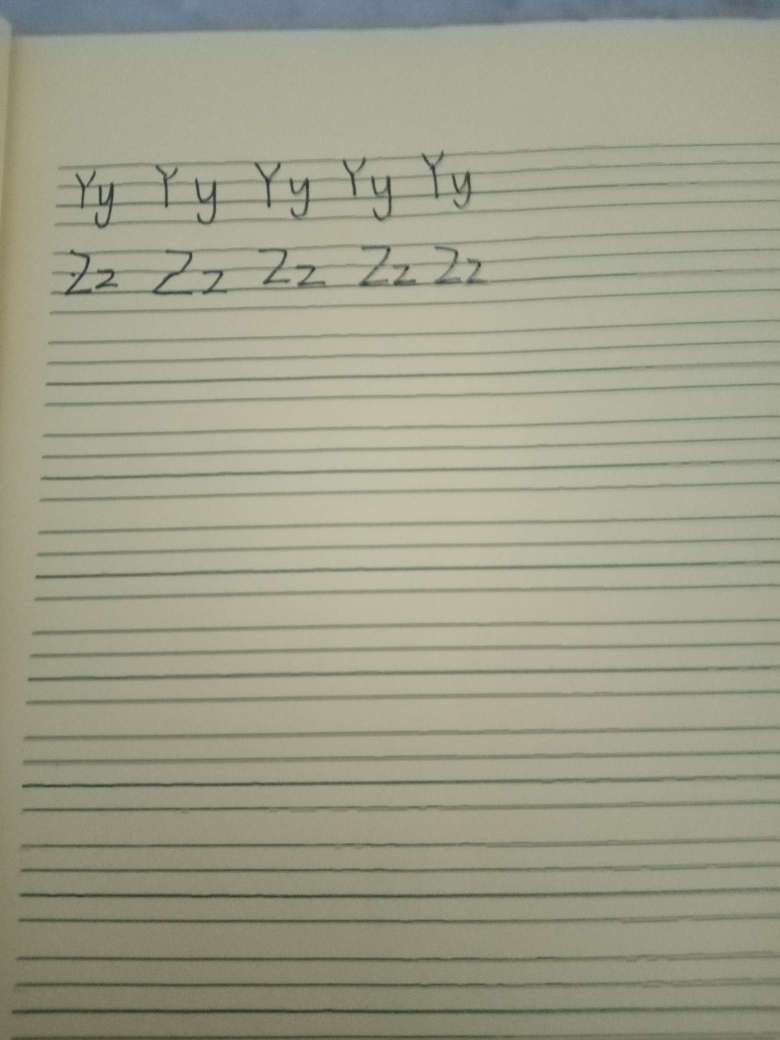 Yy Yy Yy Yy Yy
Zz Zz Zz Zz Zz